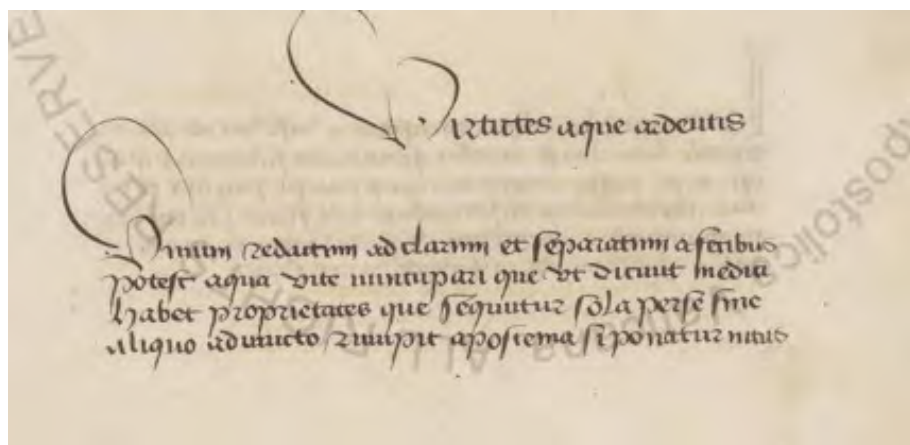 Virtutes aque ardentis
Vinum redactum ad clarum et separatum a fecibus
potest aqua vite nuncupari que ut dicunt medici
habet proprietates que sequuntur sola per se sine
aliquo adiuncto rumpit apostema si ponatur intus